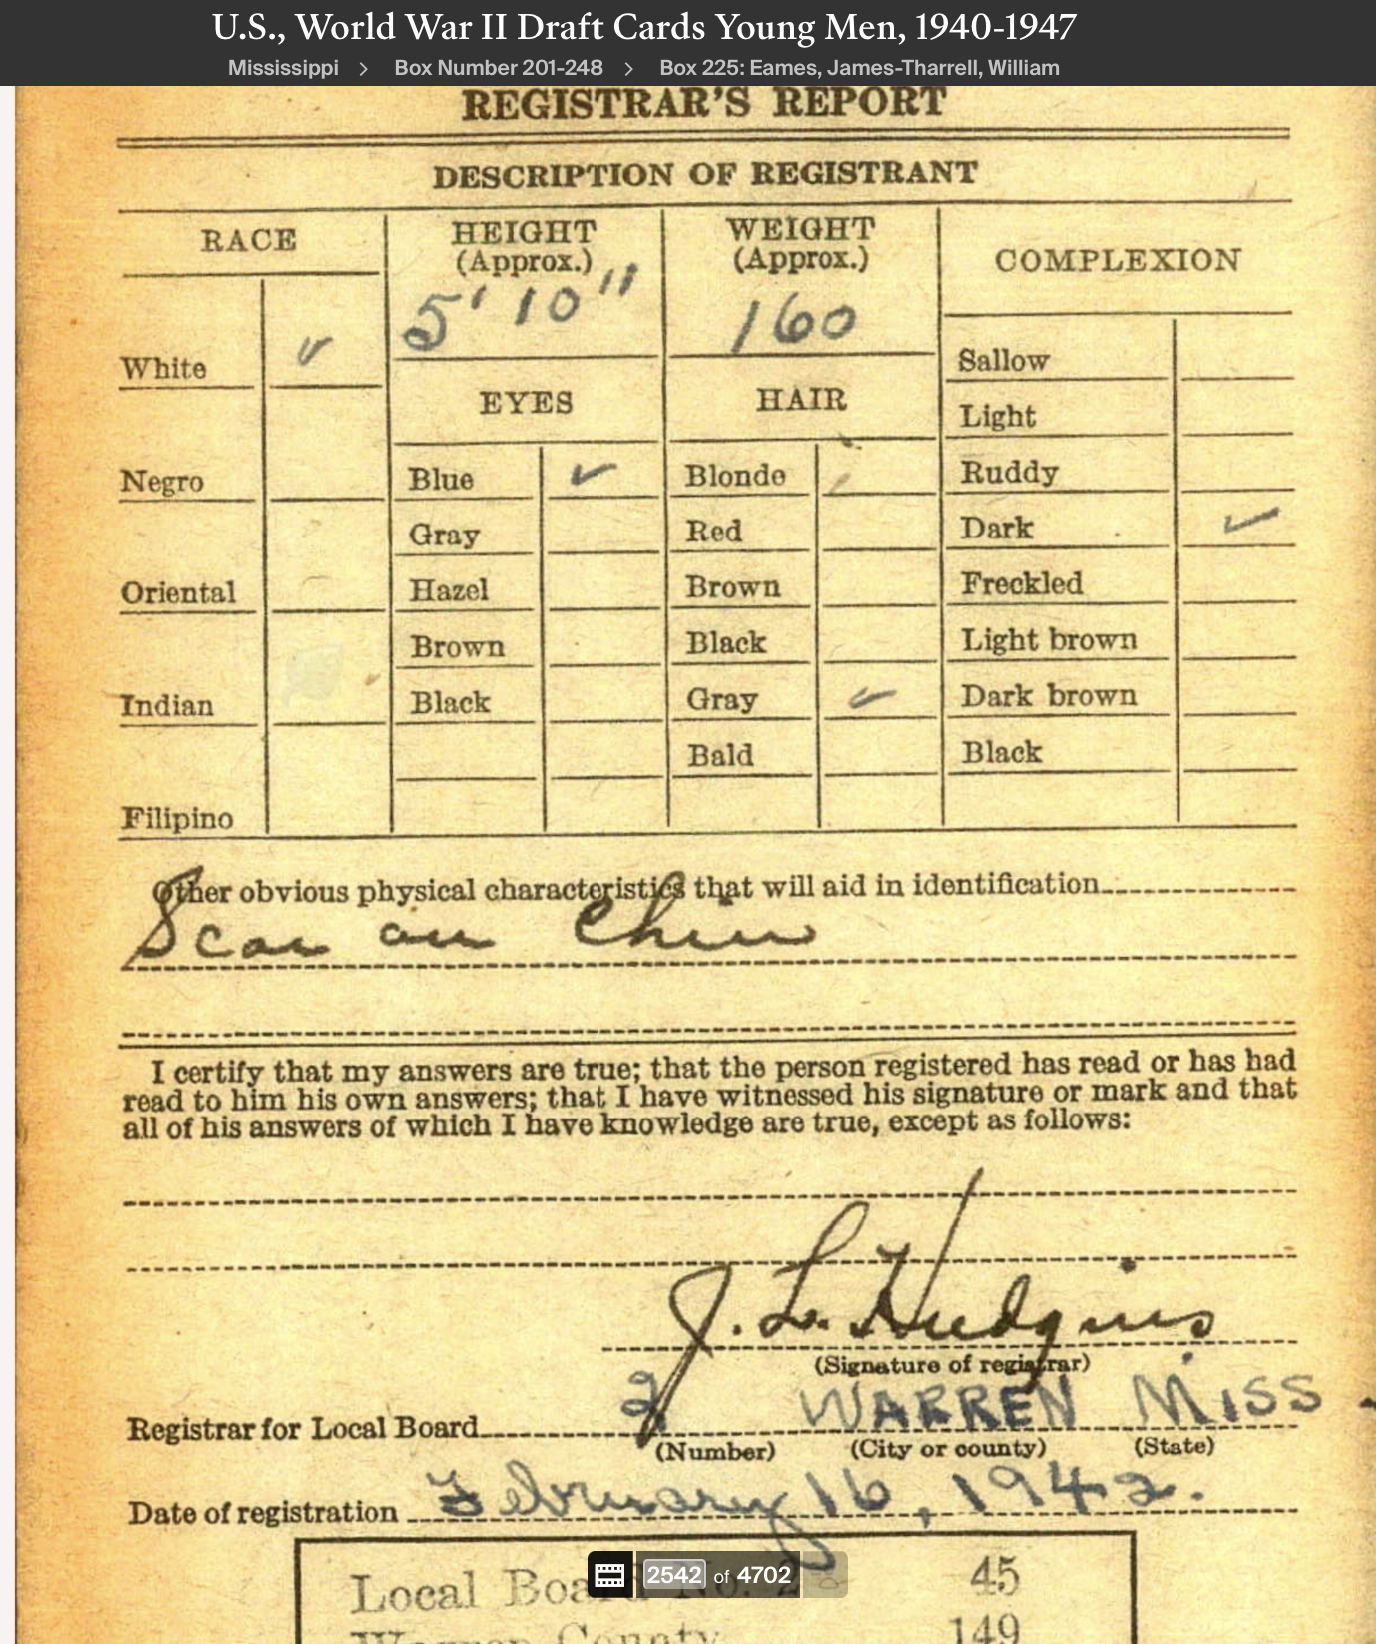 U.S., World War II Draft Cards Young Men, 1940-1947
Mississippi > Box Number 201-248 > Box 225: Eames, James-Tharrell, William
REGISTRAR'S REPORT
DESCRIPTION OF REGISTRANT
RACE
White ✓
Negro
Oriental
Indian
Filipino
HEIGHT
(Approx.)
5' 10"
WEIGHT
(Approx.)
160
EYES
Blue ✓
Gray
Hazel
Brown
Black
HAIR
Blonde
Red
Brown
Black
Gray ✓
Bald
COMPLEXION
Sallow
Light
Ruddy
Dark ✓
Freckled
Light brown
Dark brown
Black
Other obvious physical characteristics that will aid in identification
Scar on Chin
I certify that my answers are true; that the person registered has read or has had
read to him his own answers; that I have witnessed his signature or mark and that
all of his answers of which I have knowledge are true, except as follows:
J. L. Hudgins
(Signature of registrar)
Registrar for Local Board 2 WARREN MISS
(Number) (City or county) (State)
Date of registration February 16, 1942.
2542 of 4702
Local Board No. 2 45
Warren County 149